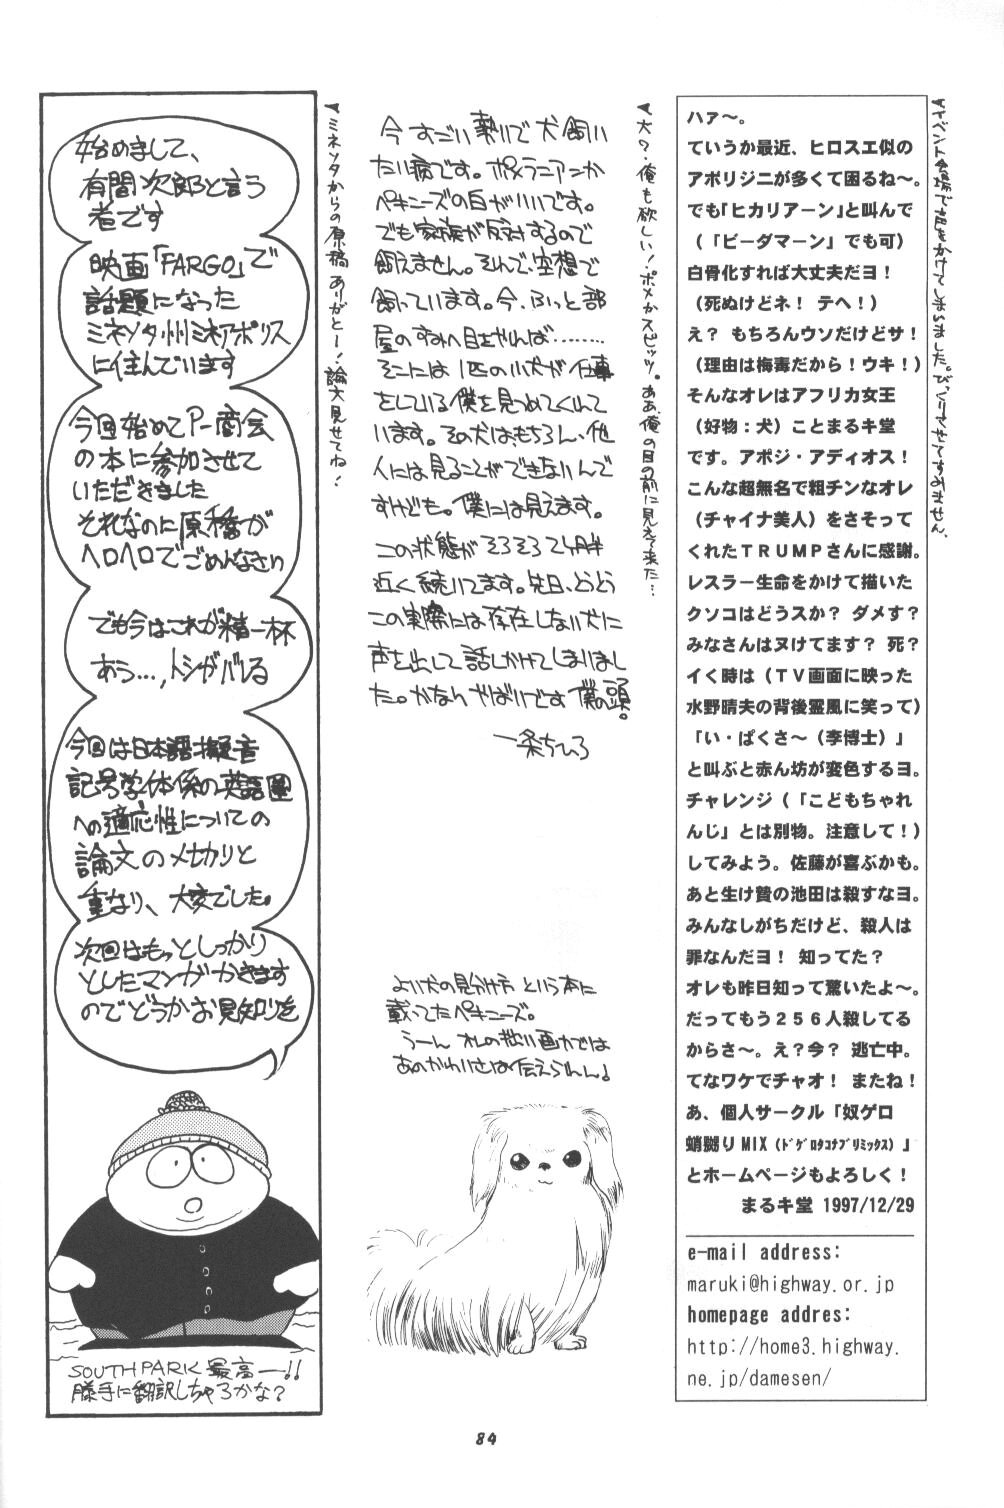 ▼イベント会場で声をかけてしまいました。びっくりさせてすみません。
ハァ〜。
ていうか最近、ヒロスエ似の
アボリジニが多くて困るね〜。
でも「ヒカリアーン」と叫んで
（「ビーダマーン」でも可）
白骨化すれば大丈夫だヨ！
（死ぬけどネ！ テヘ！）
え？ もちろんウソだけどサ！
（理由は梅毒だから！ウキ！）
そんなオレはアフリカ女王
（好物：犬）ことまるキ堂
です。アボジ・アディオス！
こんな超無名で粗チンなオレ
（チャイナ美人）をさそって
くれたＴＲＵＭＰさんに感謝。
レスラー生命をかけて描いた
クソコはどうスか？ ダメす？
みなさんはヌけてます？ 死？
イく時は（ＴＶ画面に映った
水野晴夫の背後霊風に笑って）
「い・ぱくさ〜（李博士）」
と叫ぶと赤ん坊が変色するヨ。
チャレンジ（「こどもちゃれ
んじ」とは別物。注意して！）
してみよう。佐藤が喜ぶかも。
あと生け贄の池田は殺すなヨ。
みんなしがちだけど、殺人は
罪なんだヨ！ 知ってた？
オレも昨日知って驚いたよ〜。
だってもう２５６人殺してる
からさ〜。え？今？ 逃亡中。
てなワケでチャオ！ またね！
あ、個人サークル「奴ゲロ
蛸嬲りMIX（ﾄﾞｹﾞﾛﾀｺﾅﾌﾞﾘﾐｯｸｽ）」
とホームページもよろしく！
まるキ堂 1997/12/29
e-mail address:
maruki@highway.or.jp
homepage addres:
http://home3.highway.
ne.jp/damesen/
▼犬？・俺も欲しい！・ポメかスピッツ。ああ、俺の目の前に見えて来た…
今すごい勢いで犬飼い
たい病です。ポメラニアンか
ペキニーズの白がいいです。
でも家族が反対するので
飼えません。それで、空想で
飼っています。今、ふっと部
屋のすみへ目をやれば………
そこには１匹の小犬が仕事
をしている僕を見つめてくれて
います。その犬は、もちろん、他
人には見ることができないんで
すけども。僕には見えます。
この状態がそろそろ2ヶ月半
近く続いてます。先日、とうとう
この実際には存在しない犬に
声を出して話しかけてしまいまし
た。かなりやばいです 僕の頭。
一条ちひろ
よい犬の見分け方 という本に
載ってたペキニーズ。
うーん オレの拙い画力では
あのかわいさは伝えられん♩
▼ミネソタからの原稿 ありがとー！論文見せてね！
始めまして、
有間次郎と言う
者です
映画「FARGO」で
話題になった
ミネソタ州ミネアポリス
に住んでいます
今回始めてP-商会
の本に参加させて
いただきました
それなのに原稿が
ヘロヘロでごめんなさい
でも今はこれが精一杯
あう…，トシがバレる
今回は日本語擬音
記号学体係の英語圏
への適応性についての
論文の〆切りと
重なり、大変でした。
次回はもっとしっかり
としたマンガかきます
のでどうかお見知りを
SOUTHPARK 最高ー!!
勝手に翻訳しちゃろかな？
84